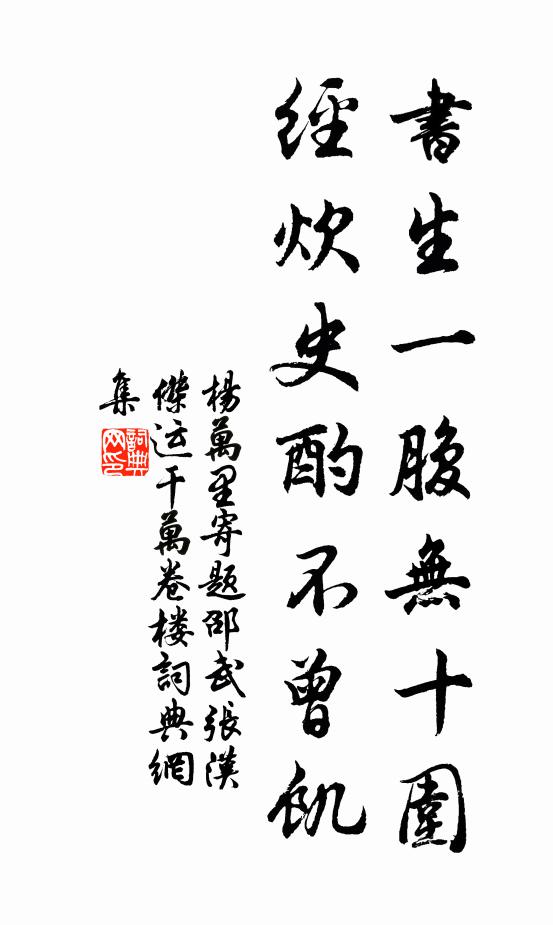 書生一腹無十圍
經炊史酌不曾飢
楊萬里寄題邵武張漢
傑运千萬卷楼詞典網
集
詞典
网印